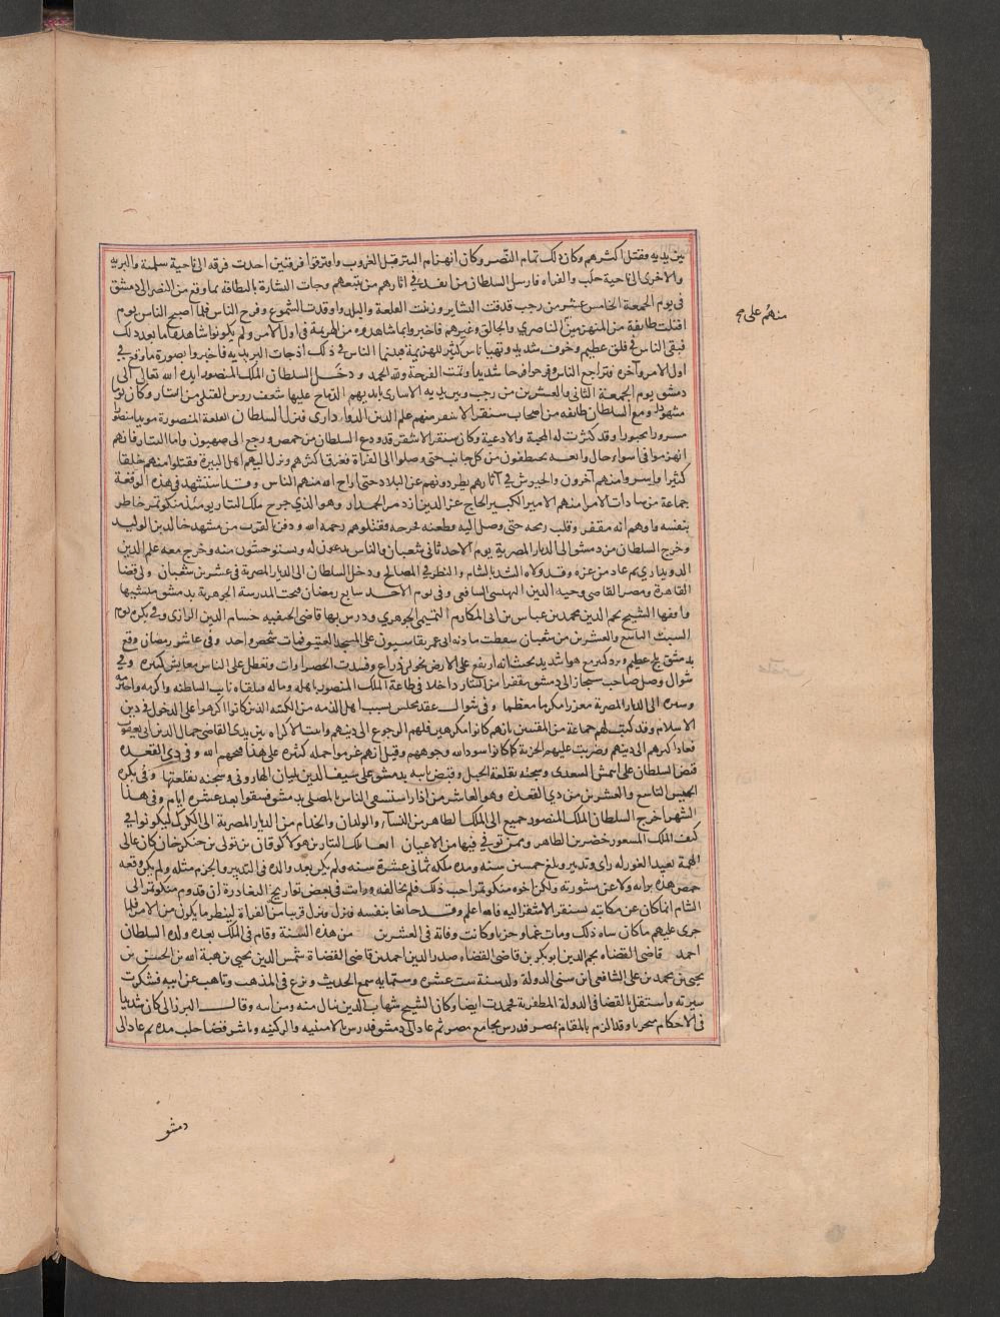 بين يديه وقتل اكثرهم وكان ذلك تمام النصر وكان انهزام التتر قبل الغروب وافترقوا فرقتين احدت فرقه الى ناحية سلمية والبريه
والاخرى الى ناحية حلب والفراه فارسل السلطان من بعد في اثارهم من يتبعهم وجات البشارة بالبطاقه بما وقع من النصر الى دمشق
في يوم الجمعة الخامس عشر من رجب فدقت البشاير وزينت القلعة والبلد واوقدت الشموع وفرح الناس فلما اصبح الناس يوم
اقبلت طايفة من المنهزمين الناصري والجالق وغيرهم فاخبروا بما شاهدوه من الهزيمة في اول الامر ولم يكونوا شاهدوا ما بعد ذلك
فبقي الناس في قلق عظيم وخوف شديد وتهيا ناس كثير للهزيمة فبينما الناس في ذلك اذ جات البريديه فاخبروا بصورة ما وقع في
اول الامر وآخره فتراجع الناس وفرحوا فرحا شديدا وتمت الفرحة ولله الحمد ودخل السلطان الملك المنصور ايده الله تعالى الى
دمشق يوم الجمعة الثاني والعشرين من رجب وبين يديه الاسارى بايديهم الرماح عليها شعف روس القتلى من التتار وكان يوما
مشهودا ومع السلطان طائفه من اصحاب سنقر الاشقر منهم علم الدين الدواداري فنزل السلطان القلعة المنصورة مويدا منصورا
مسرورا محبورا وقد كثرت له المحبة والادعية وكان سنقر الاشقر قد ودع السلطان من حمص ورجع الى صهيون واما التتار فانهم
انهزموا في اسواء حال واتعسه يتخطفون من كل جانب حتى وصلوا الى الفراة فغرق اكثرهم ونزل اليهم اهل البيرة وقتلوا منهم خلقا
كثيرا واسروا منهم آخرون والجيوش في آثارهم يطردونهم عن البلاد حتى اراح الله منهم الناس وقد استشهد في هذه الوقعة
جماعة من سادات الامرا منهم الامير الكبير الحاج عز الدين ازدمر الجمدار وهو الذي جرح ملك التتار يومئذ منكوتمر خاطر
بنفسه واوهم انه مقفز وقلب رمحه حتى وصل اليه وطعنه فجرحه وقتلوه رحمه الله ودفن بالقرب من مشهد خالد بن الوليد
وخرج السلطان من دمشق الى الديار المصرية يوم الاحد ثاني شعبان والناس يدعون له ويستوحشون منه وخرج معه علم الدين
الدويداري ثم عاد من غزه وقد ولاه الشد بالشام والنظر في المصالح ودخل السلطان الى الديار المصرية في عشرين شعبان وولي قضا
القاهرة ومصر القاضي وجيه الدين البهنسي الشافعي وفي يوم الاحد سابع رمضان فتحت المدرسة الجوهرية بدمشق منشيها
وواقفها الشيخ نجم الدين محمد بن عباس بن ابي المكارم التميمي الجوهري ودرس بها قاضي الحنفيه حسام الدين الرازي وفي بكرة يوم
السبت التاسع والعشرين من شعبان سقطت ماذنه ابي عمر بقاسيون على المسجد العتيق فمات شخص واحد وفي عاشر رمضان وقع
بدمشق ثلج عظيم وبرد كثير مع هوا شديد بحيث انه ارتفع على الارض نحو من ذراع وفسدت الخضراوات وتعطل على الناس معايش كثيره وفي
شوال وصل صاحب سنجار الى دمشق مقفزا من التتار داخلا في طاعة الملك المنصور باهله وماله فتلقاه نايب السلطنه واكرمه واحترمه
وسيره الى الديار المصرية معززا مكرما معظما وفي شوال عقد مجلس بسبب اهل الذمه من الكتبه الذين كانوا اكرهوا على الدخول في دين
الاسلام وقد كتب لهم جماعة من المفتيين بانهم كانوا مكرهين فلهم الرجوع الى دينهم واثبت الاكراه بين يدي القاضي جمال الدين ابي يعقوب
فعاد اكثرهم الى دينهم وضربت عليهم الجزية كما كانوا سود الله وجوههم وقيل انهم غرموا جمله كثيره على هذا قبحهم الله وفي ذي القعده
قبض السلطان على ايتمش السعدي وسجنه بقلعة الجبل وقبض نايبه بدمشق على سيف الدين بلبان الهاروني وسجنه بقلعتها وفي بكرة
الخميس التاسع والعشرين من ذي القعده وهو العاشر من اذار استسقى الناس بالمصلى بدمشق فسقوا بعد عشره ايام وفي هذا
الشهر اخرج السلطان الملك المنصور جميع آل الملك الظاهر من النساء والولدان والخدام من الديار المصرية الى الكرك ليكونوا في
كنف الملك المسعود خضر بن الظاهر وممن توفي فيها من الاعيان ابغا ملك التتار بن هولاكو قان بن تولى بن جنكز خان كان عالي
الهمة بعيد الغور له راي وتدبير وبلغ خمسين سنه ومده ملكه ثماني عشرة سنه ولم يكن بعد والده في التدبير والحزم مثله ولم يكن وقعه
حمص هذه برايه ولا عن مشورته ولكن اخوه منكوتمر احب ذلك فلم يخالفه ورايت في بعض تواريخ البغاددة ان قدوم منكوتمر الى
الشام انما كان عن مكاتبه سنقر الاشقر اليه فالله اعلم وقد جا ابغا بنفسه فنزل قريبا من الفراة لينظر ما يكون من الامر فلما
جرى عليهم ما كان ساه ذلك ومات غما وحزنا وكانت وفاته في العشرين من هذه السنة وقام في الملك بعده ولده السلطان
احمد قاضي القضاه نجم الدين ابو بكر بن قاضي القضاه صدر الدين احمد بن قاضي القضاة شمس الدين يحيى بن هبة الله بن الحسن بن
يحيى بن محمد بن علي الشافعي ابن سني الدولة ولد سنة ست عشره وستمايه سمع الحديث وبرع في المذهب وناب عن ابيه فشكرت
سيرته واستقل بالقضا في الدولة المظفرية فحمدت ايضا وكان الشيخ شهاب الدين ينال منه ومن ابيه وقال البرزالي كان شديدا
في الاحكام متحريا وقد الزم بالمقام بمصر فدرس بجامع مصر ثم عاد الى دمشق فدرس بالامينيه والركنيه وباشر قضا حلب مده ثم عاد الى
منهم على مح
دمشق